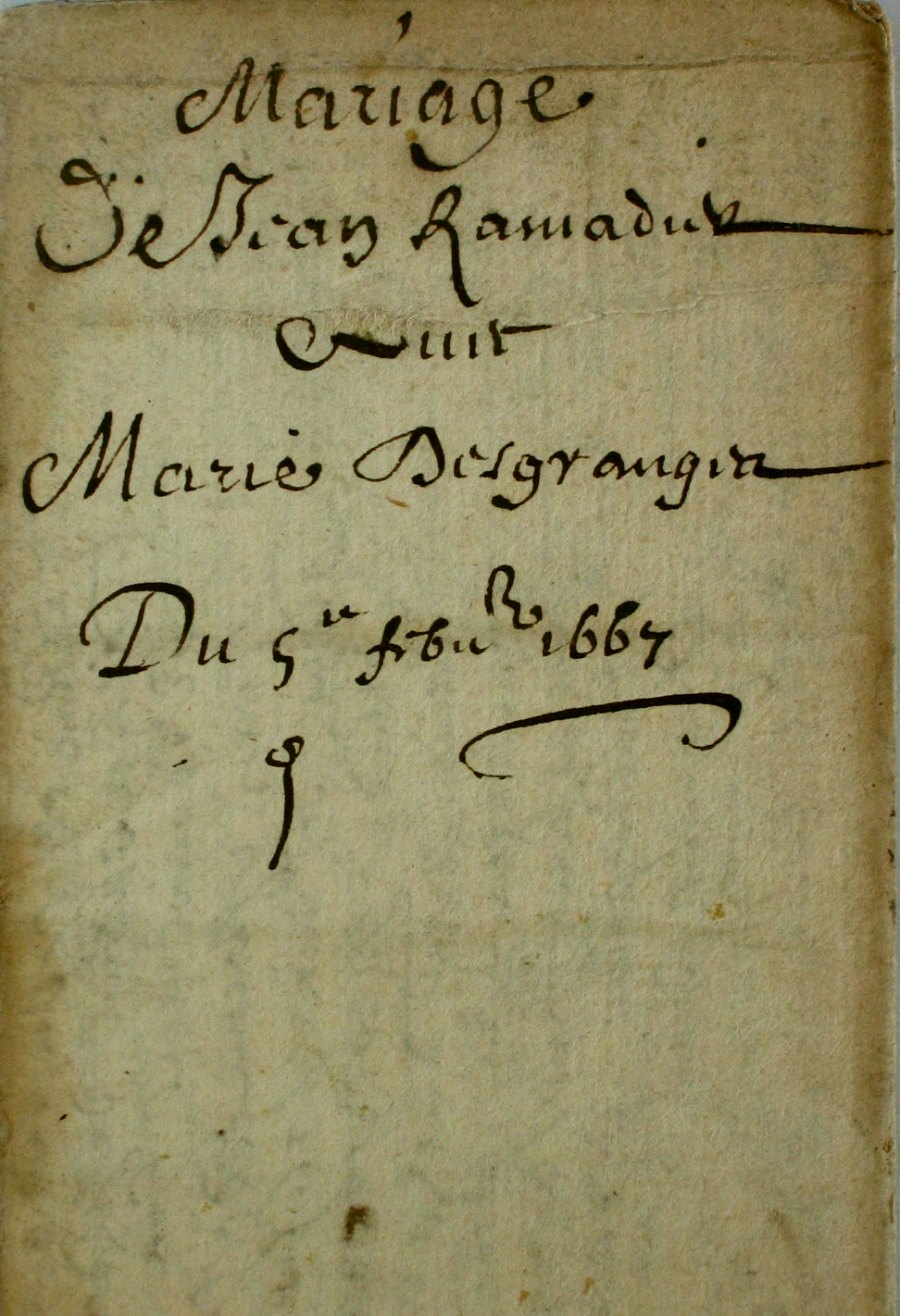 Mariage
De Jean Ramadier
Avec
Marie Desgranges
Du 5e febvr 1667